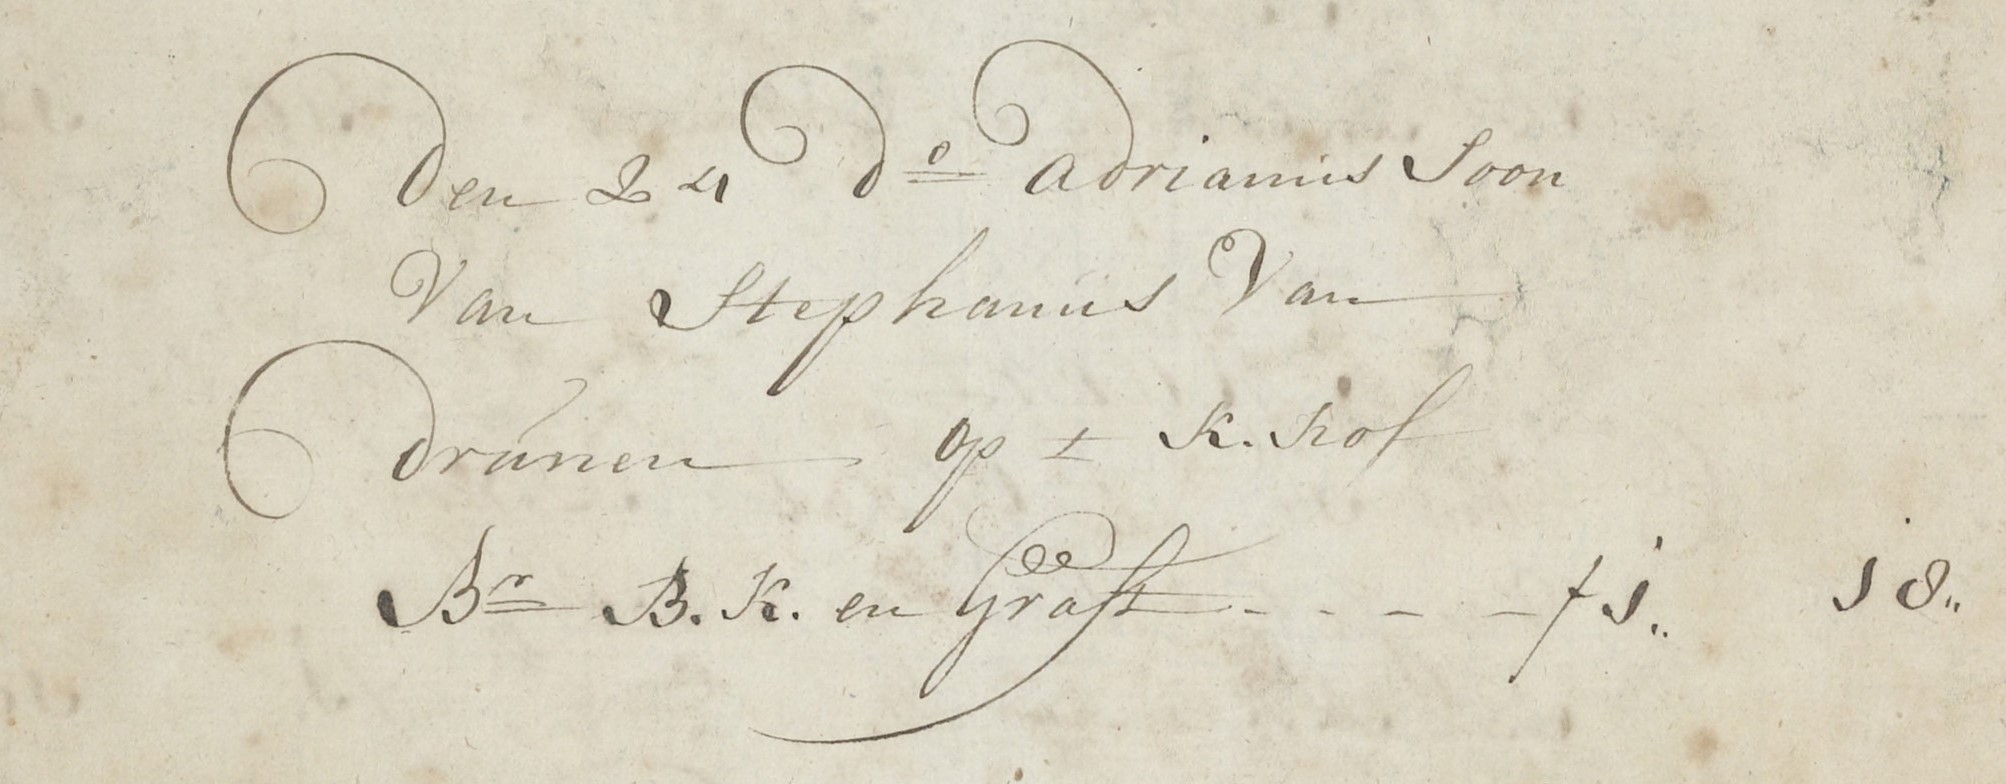 Den 24 do Adrianus Soon
Van Stephanus Van
Drúnen op t K. Hof
Br B. K. en Graft - - - - f 1,, 18,,